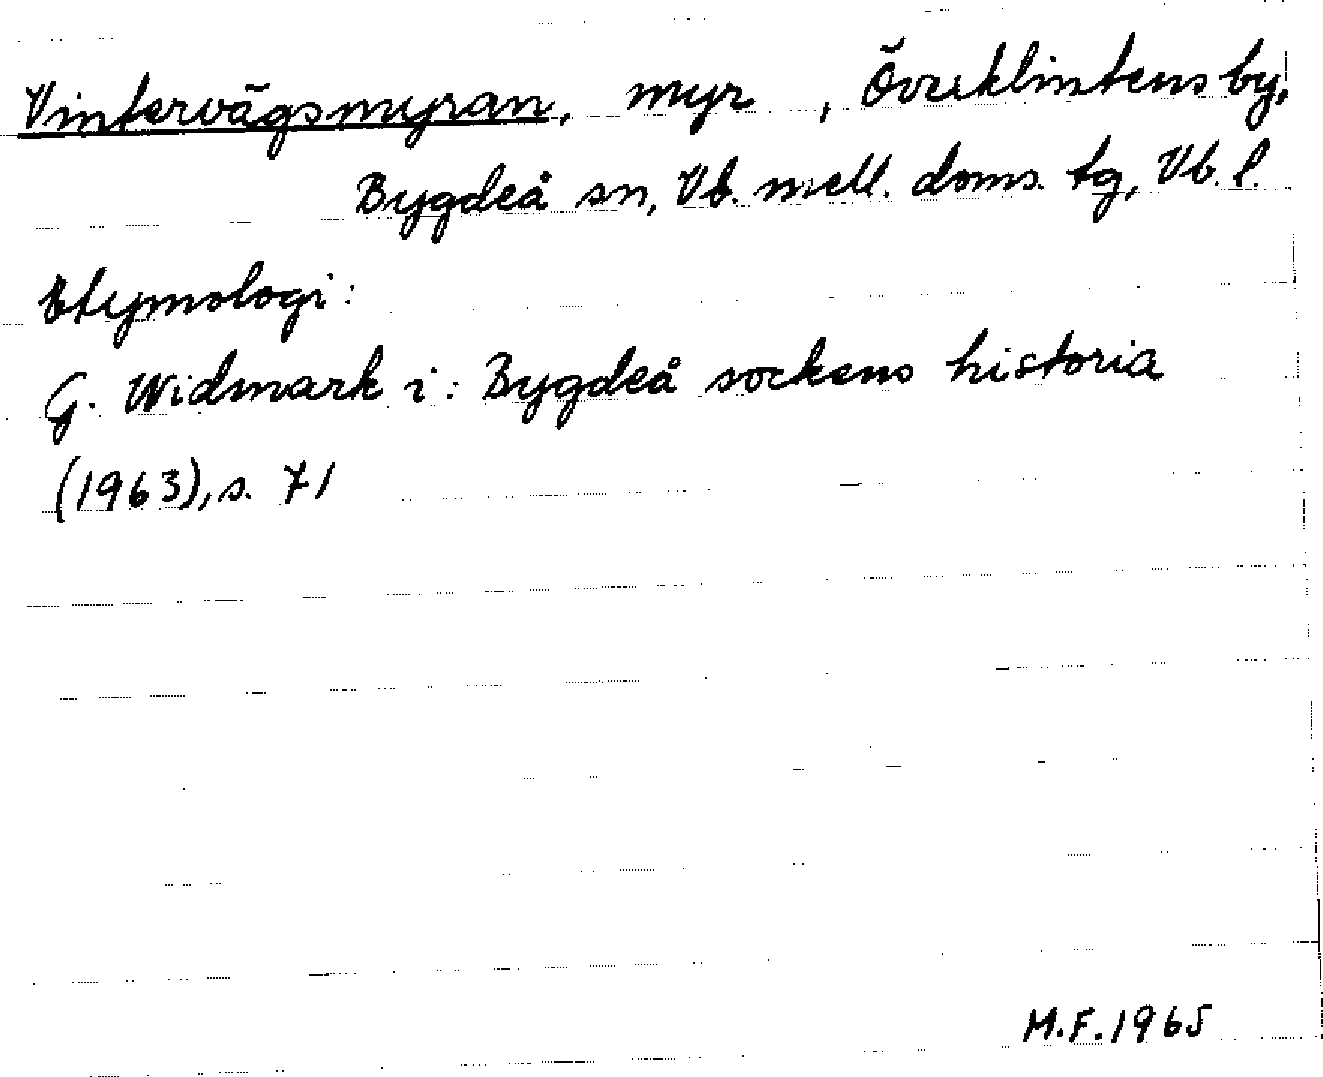 Vintervägsmyran, myr, Överklintens by,
Bygdeå sn, Vb. mell. doms. tg, Vb. l.
Etymologi:
G. Widmark i: Bygdeå sockens historia
(1963), s. 71
M.F. 1965